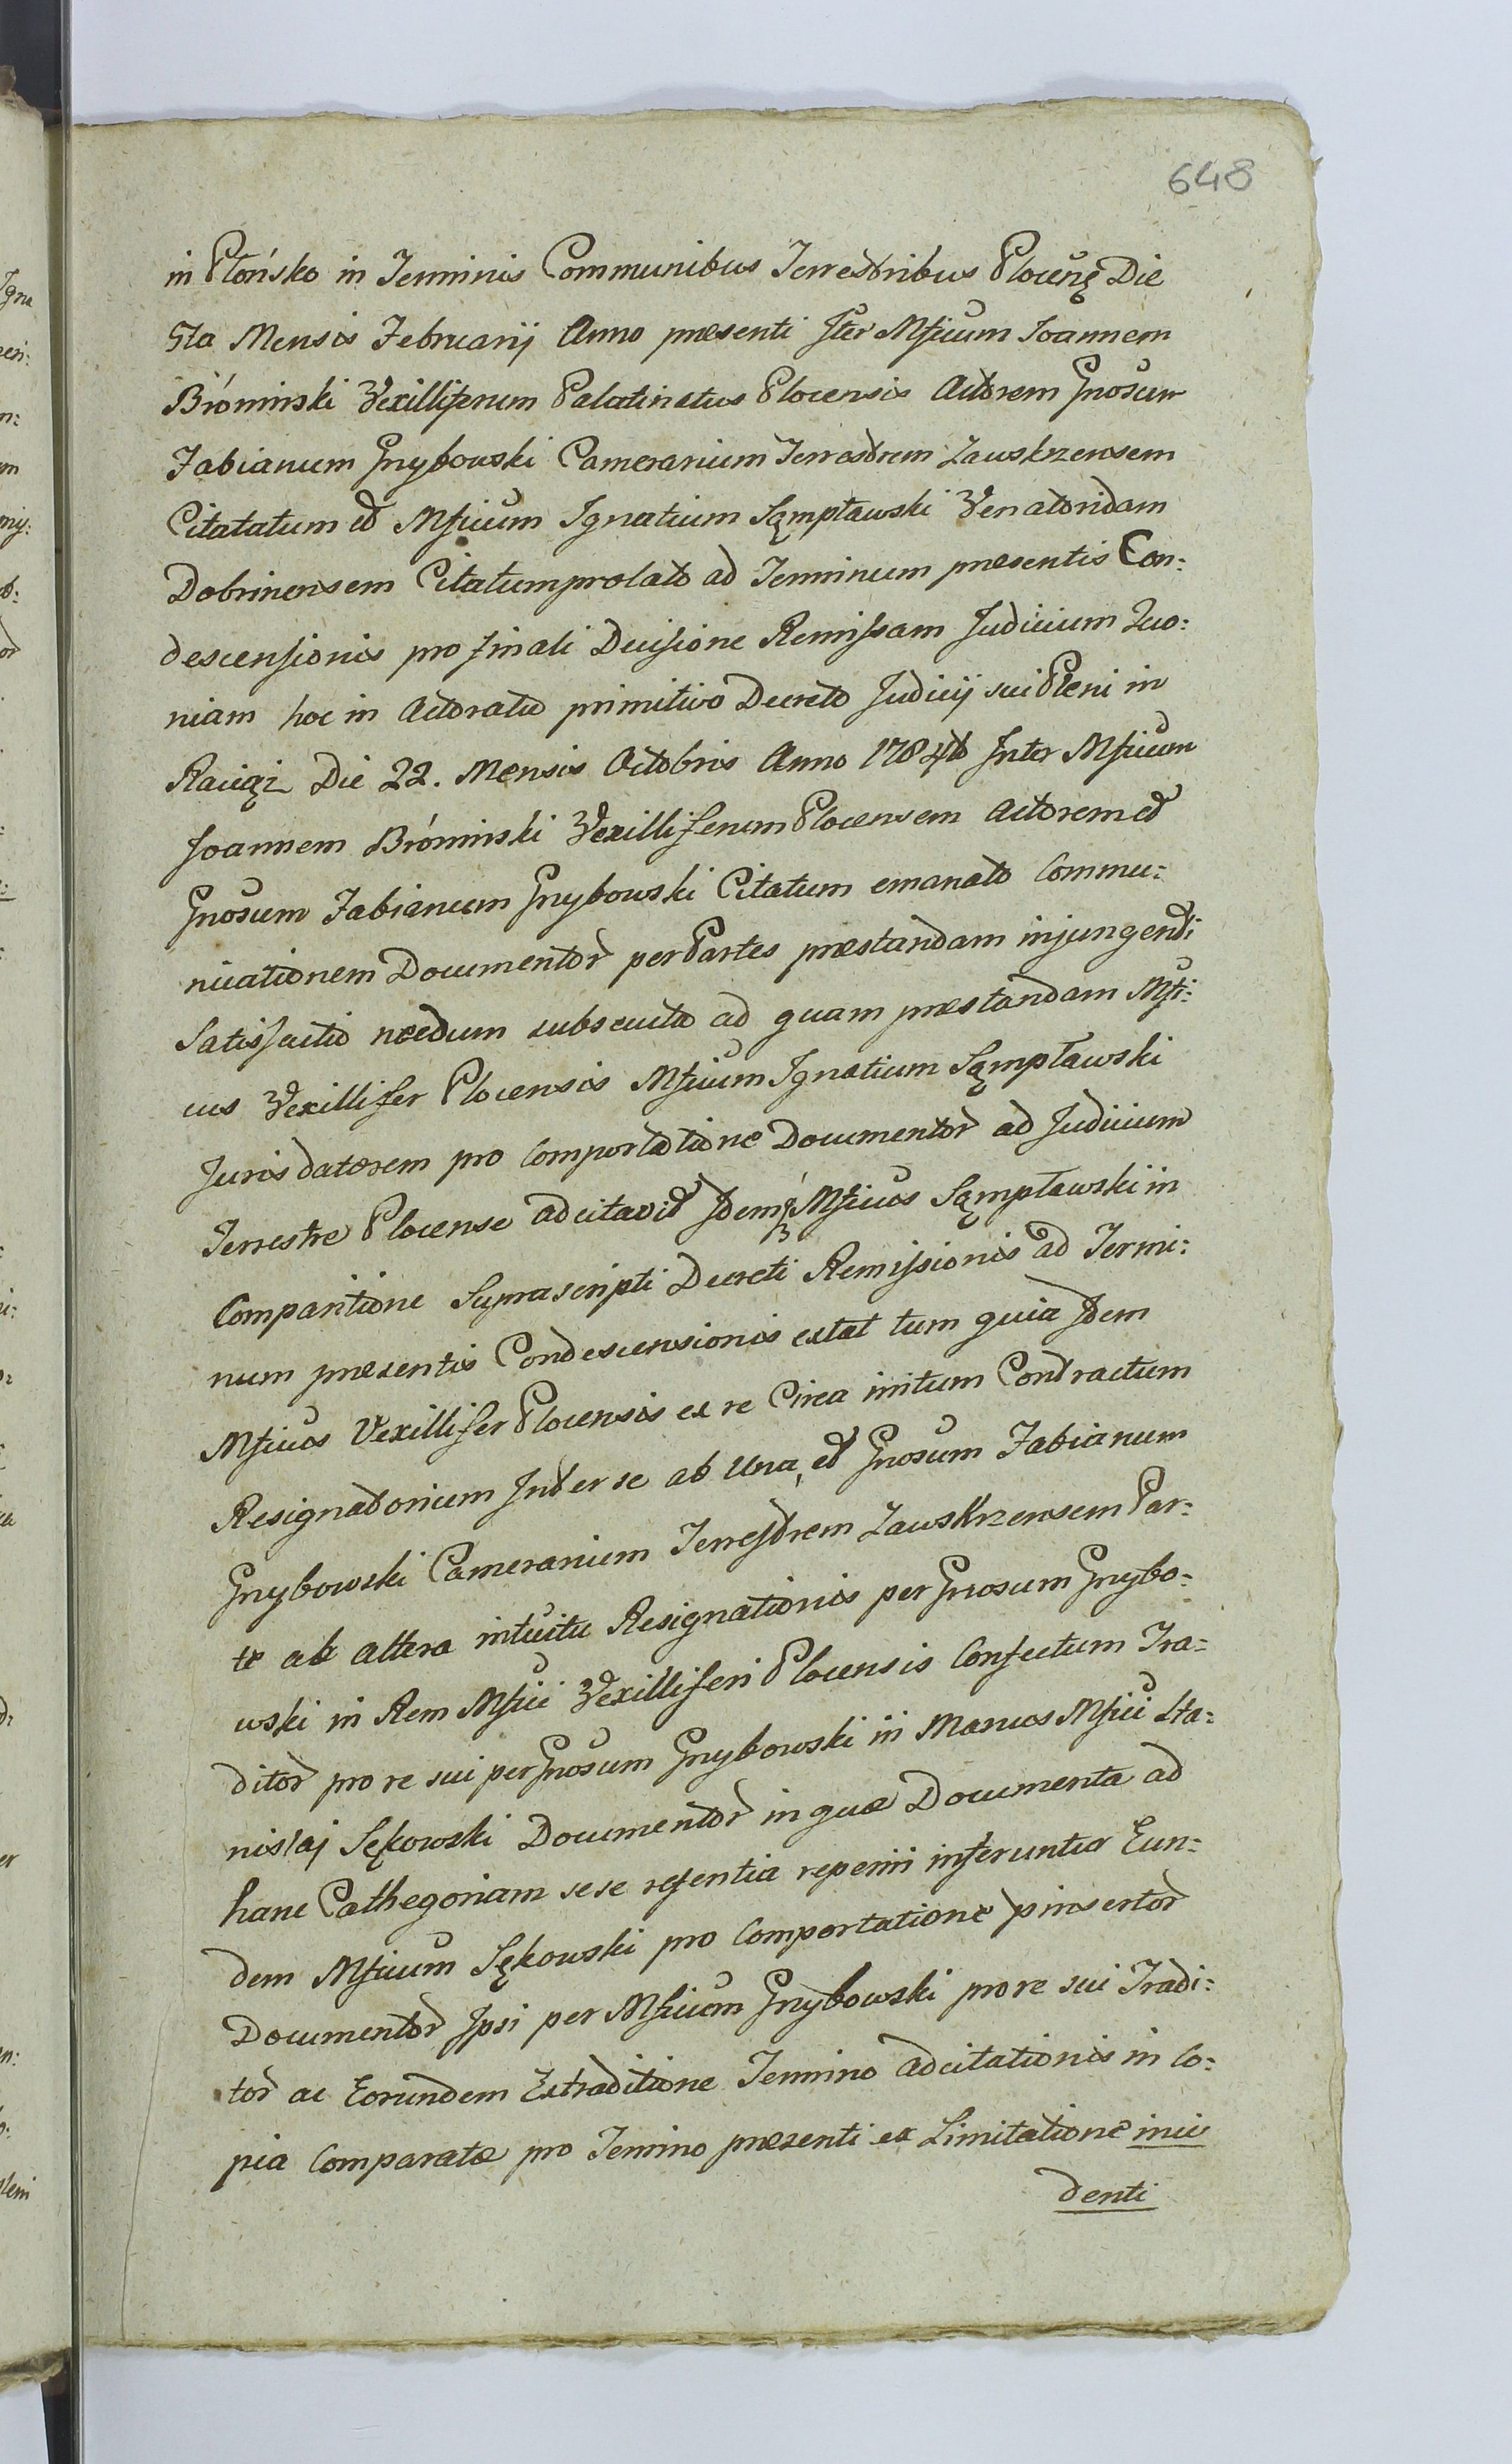 648
in Płońsko in Terminis Communibus Terrestribus Plocen̄ę Die
5ta Mensis Februarij Anno præsenti Jter Mficum Joannem
Bromiński Vexilliferum Palatinatus Plocensis Actorem Gnosum
Fabianum Grzybowski Camerarium Terrestrem Zawskrzensem
Citatatum et Mficum Ignatium Sąmpławski Venatoridam
Dobrinensem Citatum prolato ad Terminum præsentis Con:
descensionis pro finali Decisione Remissam Judicium Quo:
niam hoc in Actoratu primitivo Decreto Judicij sui Pleni in
Raciąż Die 22. Mensis Octobris Anno 1784to Inter Mficum
Joannem Bromiński Vexilliferum Plocensem Actorem et
Gnosum Fabianum Grzybowski Citatum emanato Commu:
nicationem Documentor per Partes præstandam injungenti
Satisfactio necdum subsecuta ad quam præstandam Mfi:
cus Vexillifer Plocensis Mficum Ignatium Sąmpławski
Juris datorem pro Comportatione Documentor ad Judicium
Terrestre Plocense adcitavit Idemq Mficus Sąmpławski in
Comparitione Suprascripti Decreti Remissionis ad Termi:
num præsentis Condescensionis extat tum quia Idem
Mficus Vexillifer Plocensis ex re Circa initum Contractum
Resignatorium Inter se ab una, et Gnosum Fabianum
Grzybowski Camerarium Terrestrem Zawskrzensem Par:
te ab altera intuitu Resignationis per Gnosum Grzybo:
wski in Rem Mfici Vexilliferi Plocensis Confectum Tra:
ditor pro re sui per Gnosum Grzybowski in Manus Mfici Sta:
nislaj Sękowski Documentor in quæ Documenta ad
hanc Cathegoriam sese referentia reperiri inferuntur Eun:
dem Mficum Sękowski pro Comportatione pinsertor
Documentor Ipsi per Mficum Grzybowski pro re sui Tradi:
tor ac Eorundem Extraditione Termino adcitationis in Co:
pia Comparatæ pro Termino præsenti ex Limitatione inci
denti